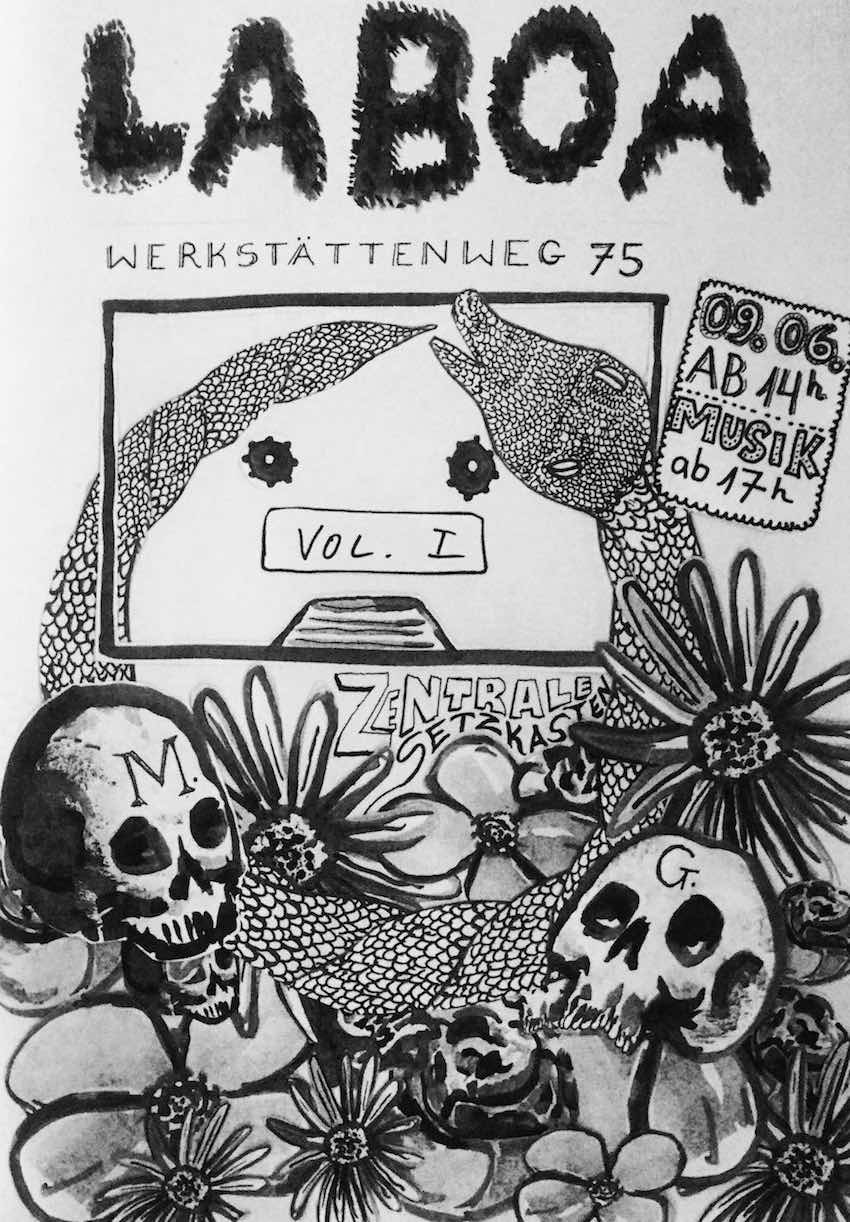 LABOA
WERKSTÄTTENWEG 75
09. 06.
AB 14h
MUSIK
ab 17h
VOL. I
ZENTRALE
SETZKASTEN
M.
G.